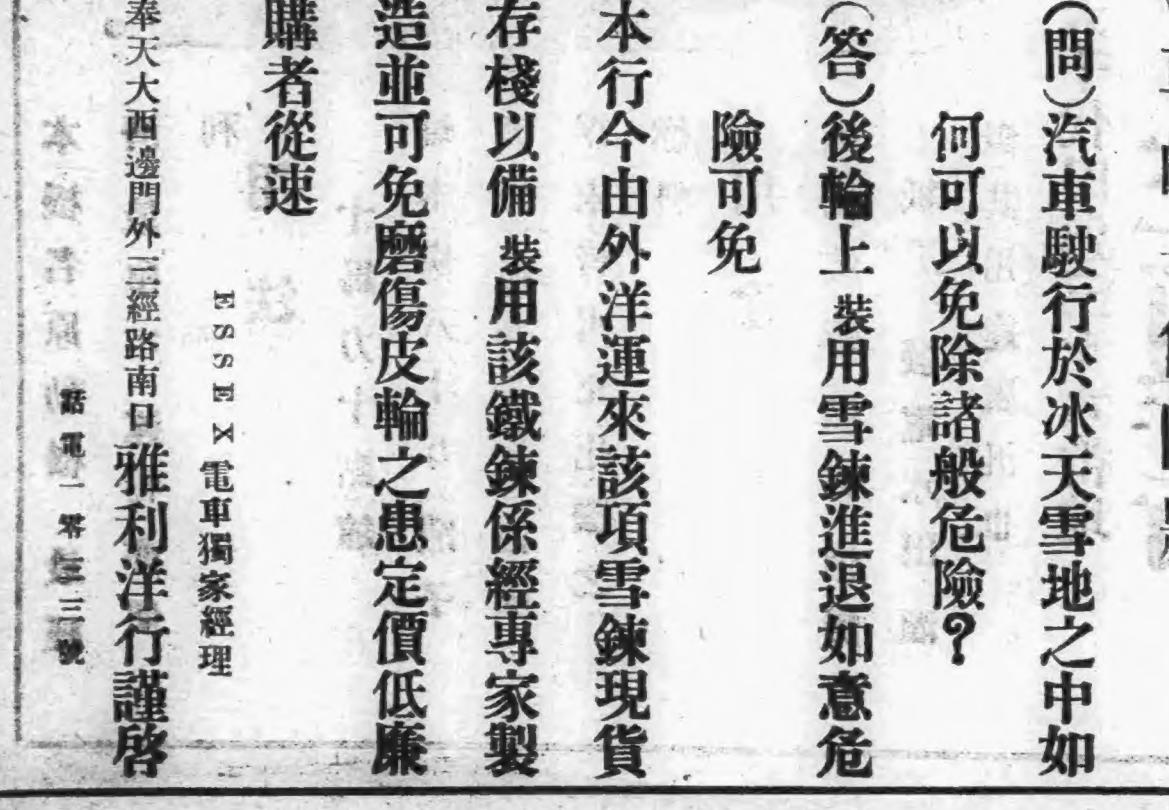 (問)汽車駛行於冰天雪地之中如
何可以免除諸般危險?
(答)後輪上裝用雪鍊進退如意危
險可免
本行今由外洋運來該項雪鍊現貨
存棧以備裝用該鐵鍊係經專家製
造並可免磨傷皮輪之患定價低廉
購者從速
ESSEX電車獨家經理
奉天大西邊門外三經路南口雅利洋行謹啓
話電一零三三號